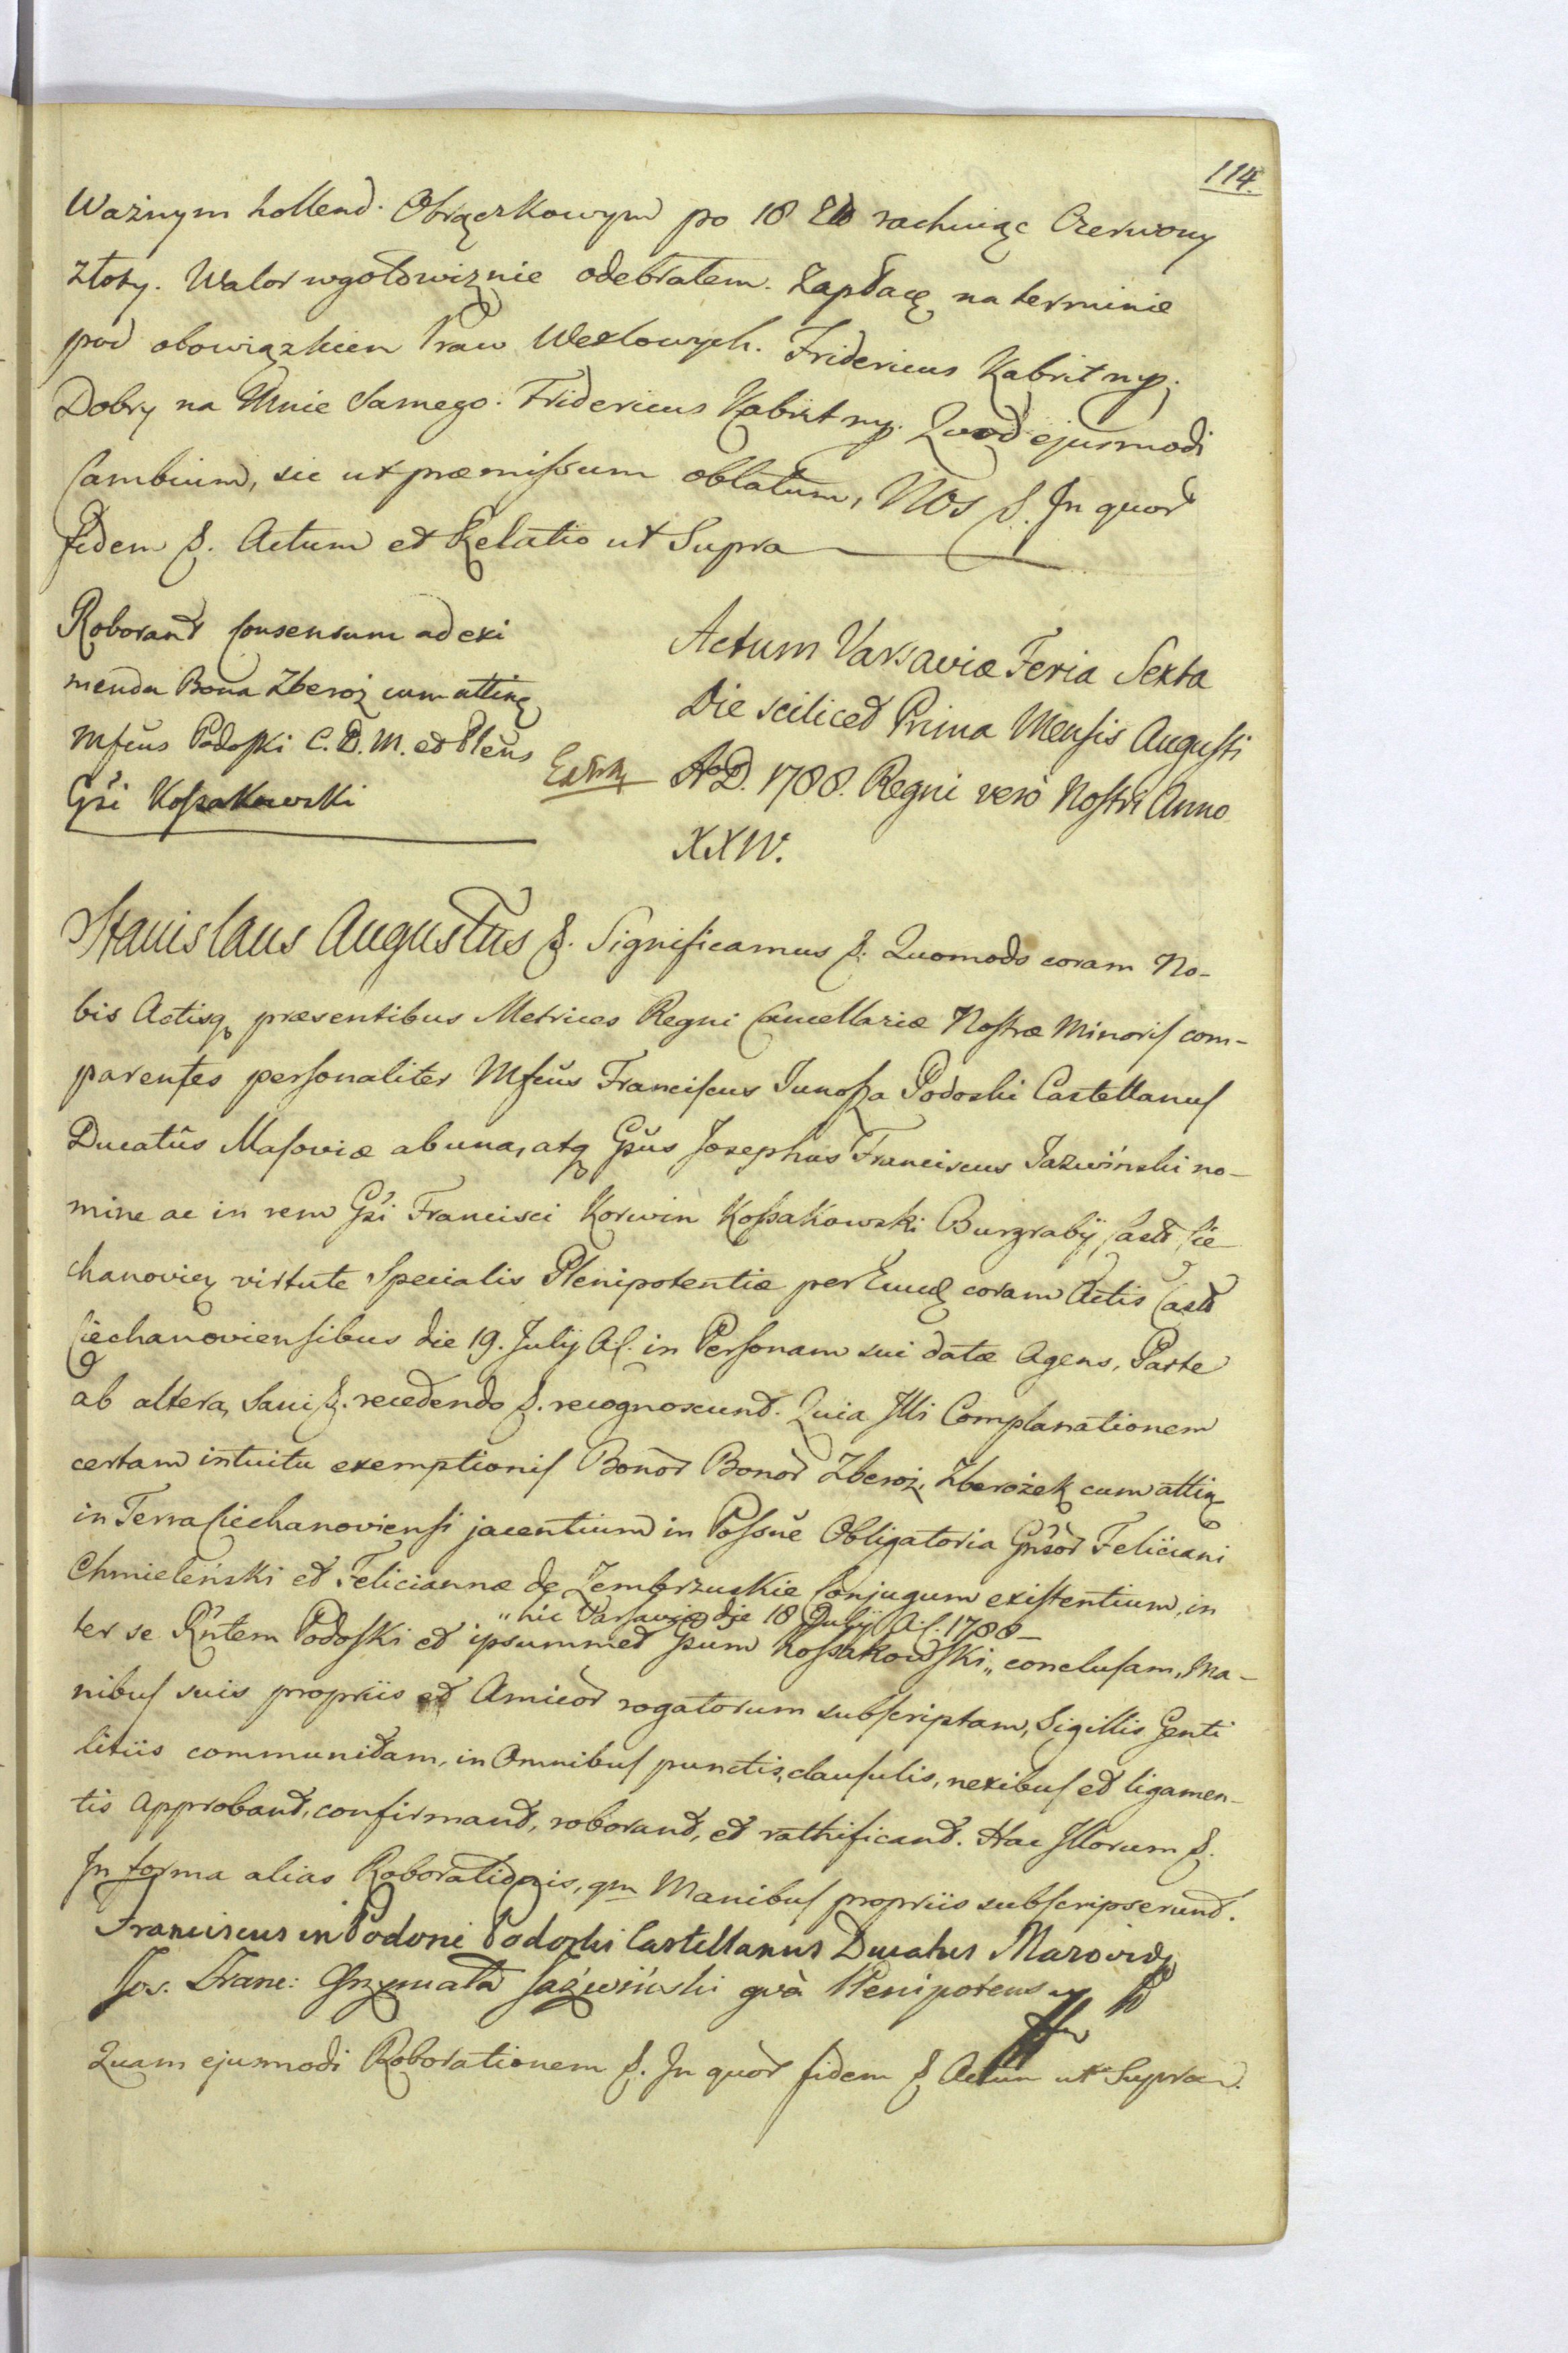 114.
Ważnym hollend. Obrączkowym po 18 Zło rachuiąc Czerwony
złoty. Walor wgotowiznie odebrałem. Zapłacę na terminie
pod obowiązkiem Praw Wexlowych. Fridericus Kabrit mp.
Dobry na Mnie Samego. Fridericus Kabrit mp. Quod ejusmodi
Cambium, sic ut præmissum oblatum, Nos &. In quor
fidem &. Actum et Relatio ut Supra
Roborant Consensum ad exi
menda Bona Zberoż cum attinę
Mfcus Podoski C. D. M. et Pleus
Gsi Kossakowski
Extr
Actum Varsaviæ Feria Sexta
Die scilicet Prima Mensis Augusti
AoD. 1788. Regni verò Nostri Anno
XXIV.
Stanislaus Augustus &. Significamus &. Quomodo coram No-
bis Actisq præsentibus Metrices Regni Cancellariæ Nostræ Minoris com-
parentes personaliter Mfcus Franciscus Junosza Podoski Castellanus
Ducatûs Masoviæ ab una, atq Gsus Josephus Franciscus Jazwiński no-
mine ac in rem Gsi Francisci Korwin Kossakowski Burgrabij Castr Cie
chanovien virtute Specialis Plenipotentiæ per Eund coram Actis Castr
Ciechanoviensibus die 19. Julij A. i. in Personam sui datæ Agens, Parte
ab altera, Sani &. recedendo &. recognoscunt. Quia Illi Complanationem
certam intuitu exemptionis Bonor Bonor Zberoż, Zberożek cum attin
in Terra Ciechanoviensi jacentium in Possne Obligatoria Gnsor Feliciani
Chmieleński et Feliciannæ de Zembrzuskie Conjugum existentium, in
„hic Varsaviæ die 18 Julij A. i. 1788 –
ter se Rntem Podoski et ipsummet Gsum Kossakowski „ conclusam, Ma-
nibus suis propriis et Amicor rogatorum subscriptam, Sigillis Genti
litiis communitam, in Omnibus punctis, clausulis, nexibus et ligamen-
tis approbant, confirmant, roborant, et rathificant. Hac Illorum &.
In forma alias Roborationis, qm Manibus propriis subscripserunt.
Franciscus in Podoni Podoski Castellanus Ducatus Mazoviæ
Jos. Franc: Grzymała Jaźwiński quà Plenipotens mp
Quam ejusmodi Roborationem &. In quòr fidem & Actum ut Supra.